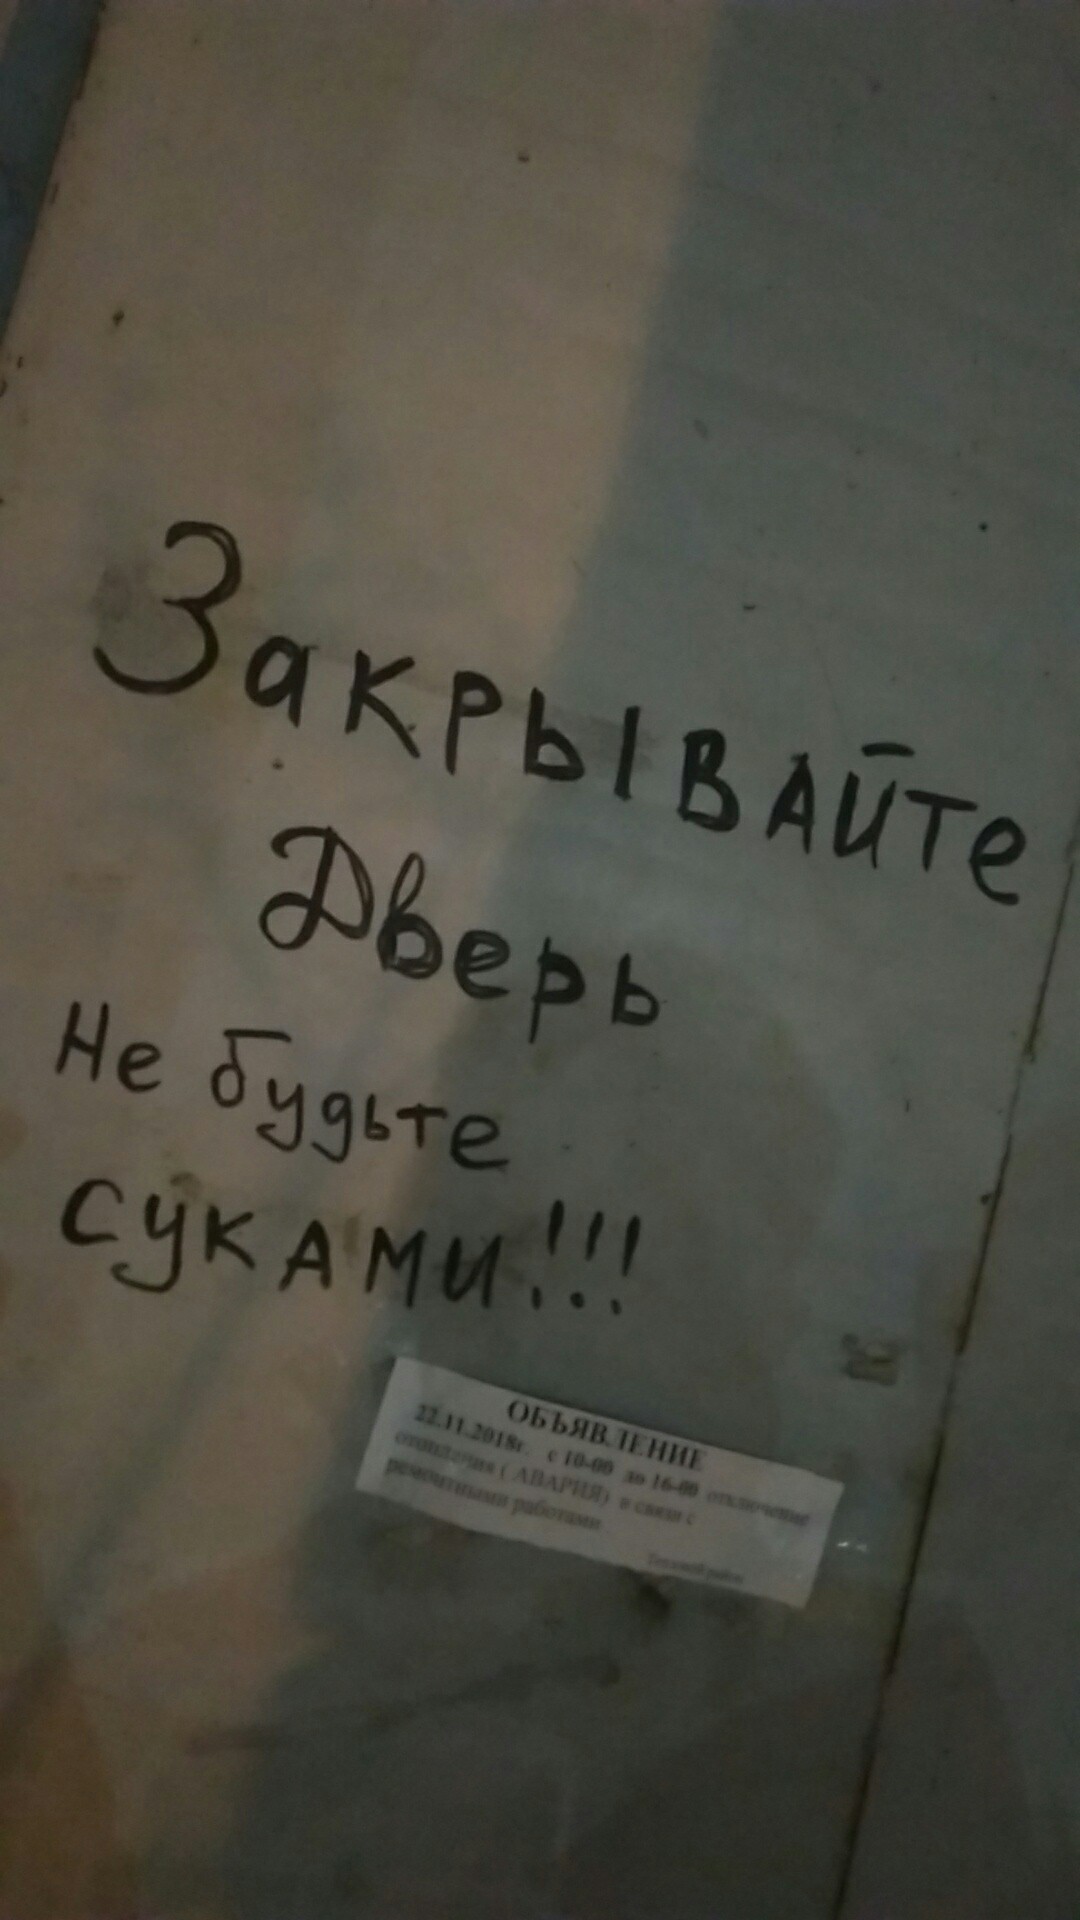 Закрывайте
Дверь
Не будьте
суками!!!
ОБЪЯВЛЕНИЕ
22.11.2018г. с 10-00 до 16-00 отключение
отопления ( АВАРИЯ) в связи с
ремонтными работами
Тепловой район